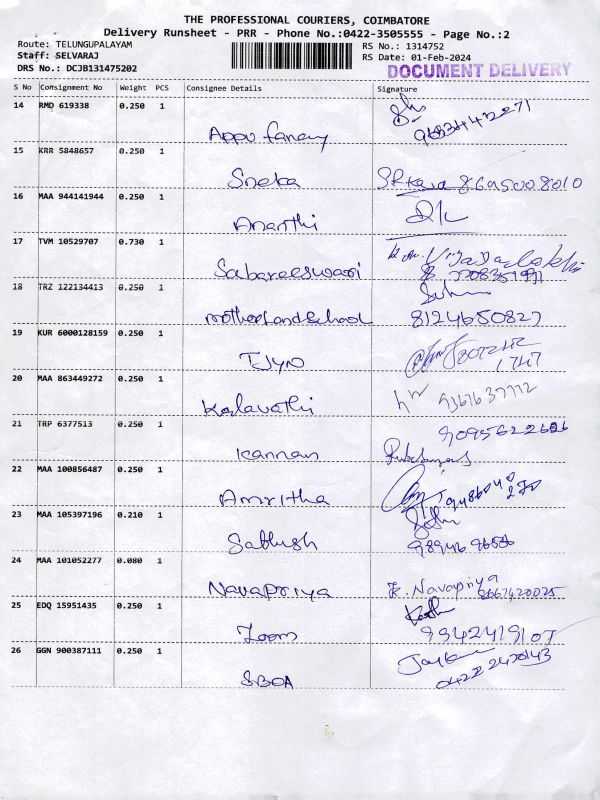 THE PROFESSIONAL COURIERS, COIMBATORE
Delivery Runsheet - PRR - Phone No.:0422-3505555 - Page No.:2
Route: TELUNGUPALAYAM RS No.: 1314752
Staff: SELVARAJ RS Date: 01-Feb-2024
DRS No.: DCJB131475202 DOCUMENT DELIVERY
S No Consignment No Weight PCS Consignee Details Signature
14 RMD 619338 0.250 1
Appu fancy
15 KRR 5848657 0.250 1
Sneka 8695008010
16 MAA 944141944 0.250 1
Ananthi
17 TVM 10529707 0.730 1
Sabareeswari
18 TRZ 122134413 0.250 1
motherland school 8124650827
19 KUR 6000128159 0.250 1
TJYN
20 MAA 863449272 0.250 1
Kalavathi
21 TRP 6377513 0.250 1
Kannan
22 MAA 100856487 0.250 1
Amritha
23 MAA 105397196 0.210 1
Sathish
24 MAA 101052277 0.080 1
Navapriya K. Navapriya
25 EDQ 15951435 0.250 1
Zoom 9942419107
26 GGN 900387111 0.250 1
SBOA 0422 2470143